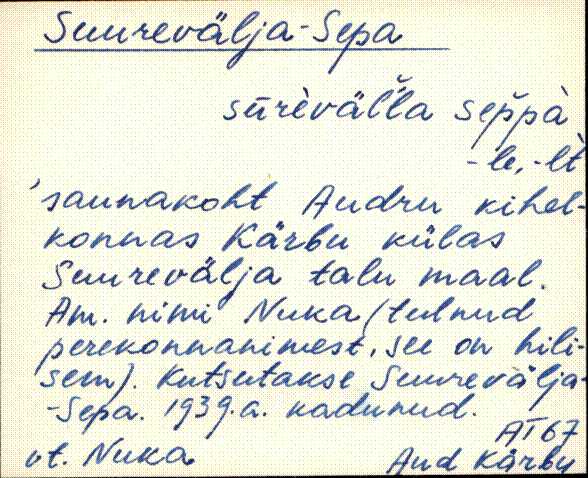 Suurevälja-Sepa
sūrèväľľa sep̆pà
-le, -lt
'saunakoht Audru kihel-
konnas Kärbu külas
Suurevälja talu maal.
Am. nimi Nuka (tulnud
perekonnanimest, see on hili-
sem). Kutsutakse Suurevälja-
-Sepa. 1939.a. kadunud.
AT 67
vt. Nuka
Aud Kärbu